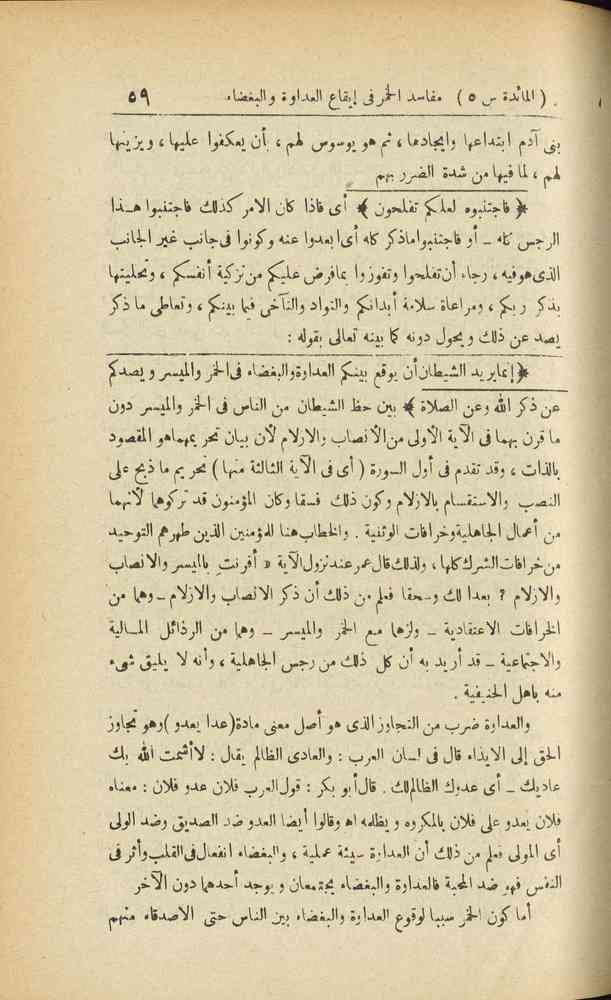 ( المائدة س ٥ ) مفاسد الخمر فى إيقاع العداوة والبغضاء ٥٩
بنى آدم ابتداعها وإيجادها ، ثم هو يوسوس لهم ، بأن يعكفوا عليها ، ويزينها
لهم ، لما فيها من شدة الضرر بهم
﴿ فاجتنبوه لعلكم تفلحون ﴾ أى فاذا كان الامر كذلك فاجتنبوا هـذا
الرجس كله – أو فاجتنبوا ماذكر كله أى ابعدوا عنه وكونوا فى جانب غير الجانب
الذى هو فيه ، رجاء أن تفلحوا وتفوزوا بما فرض عليكم من تزكية أنفسكم ، وتحليتها
بذكر ربكم ، ومراعاة سلامة أبدانكم والتواد والتآخى فيما بينكم ، وتعاطى ما ذكر
يصد عن ذلك ويحول دونه كما بينه تعالى بقوله :
﴿ إنما يريد الشيطان أن يوقع بينكم العداوة والبغضاء فى الخمر والميسر ويصدكم
عن ذكر الله وعن الصلاة ﴾ بين حظ الشيطان من الناس فى الخمر والميسر دون
ما قرن بهما فى الآية الأولى من الأنصاب والازلام لأن بيان تحريمهما هو المقصود
بالذات ، وقد تقدم فى أول السورة ( أى فى الآية الثالثة منها ) تحريم ما ذبح على
النصب والاستقسام بالازلام وكون ذلك فسقا وكان المؤمنون قد تركوهما لأنهما
من أعمال الجاهلية وخرافات الوثنية . والخطاب هنا للمؤمنين الذين طهرهم التوحيد
من خرافات الشرك كلها ، ولذلك قال عمر عند نزول الآية « أقرنتِ بالميسر والانصاب
والازلام ؟ بعدا لك وسحقا فعلم من ذلك أن ذكر الانصاب والازلام – وهما من
الخرافات الاعتقادية – ولزهما مـع الخمر والميسر – وهما من الرذائل المـالية
والاجتماعية – قد أريد به أن كل ذلك من رجس الجاهلية ، وأنه لا يليق شىء
منه باهل الحنيفية .
والعداوة ضرب من التجاوز الذى هو أصل معنى مادة (عدا يعدو) وهو تجاوز
الحق إلى الايذاء قال فى لسان العرب : والعادى الظالم يقال : لا أشمت الله بك
عاديك – أى عدوك الظالم لك . قال أبو بكر : قول العرب فلان عدو فلان : معناه
فلان يعدو على فلان بالمكروه ويظلمه اه وقالوا أيضا العدو ضد الصديق وضد الولى
أى المولى فعلم من ذلك أن العداوة سيئة عملية ، والبغضاء انفعال فى القلب وأثر فى
النفس فهو ضد المحبة فالعداوة والبغضاء يجتمعان ويوجد أحدهما دون الآخر
أما كون الخمر سببا لوقوع العداوة والبغضاء بين الناس حتى الاصدقاء منهم